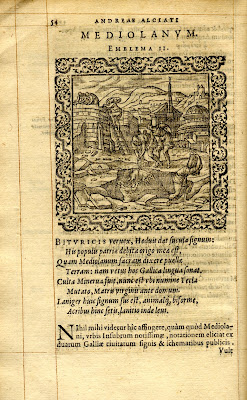 54 ANDREAE ALCIATI
MEDIOLANVM.
EMBLEMA II.
BITVRICIS vervex, Heduis dat sucula signum:
His populis patriæ debita origo meæ est,
Quam Mediolanum sacram dixere puellæ
Terram: nam vetus hoc Gallica lingua sonat.
Culta Minerva fuit, nunc est ubi numine Tecla
Mutato, Matris virginis ante domum.
Laniger huic signum sus est, animalque biforme,
Acribus hinc setis, lanitio inde levi.
Nihil mihi videtur hîc affingere, quàm quòd Mediola-
ni, vrbis Insubrum notissimæ, notationem eliciat ex
duarum Galliæ ciuitatum signis & schematibus publicis.
Vult